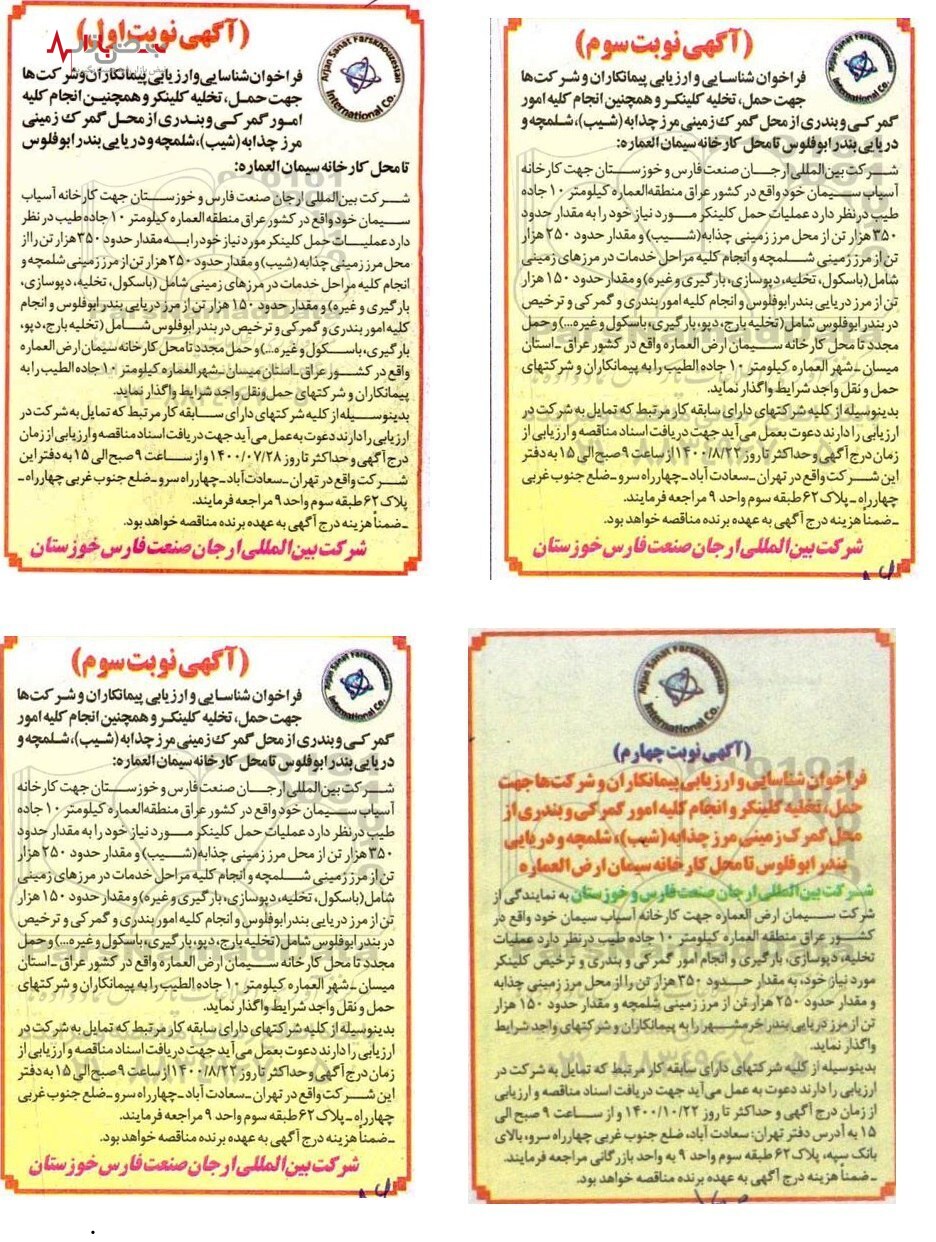 (آگهی نوبت اول)
Arjan Sanat Farskhouzestan
International Co.
فراخوان شناسایی وارزیابی پیمانکاران و شرکت‌ها
جهت حمل، تخلیه کلینکر و همچنین انجام کلیه
امور گمرکی و بندری از محل گمرک زمینی
مرز چذابه (شیب)، شلمچه و دریایی بندر ابوفلوس
تا محل کارخانه سیمان العماره:
شرکت بین‌المللی ارجان صنعت فارس و خوزستان جهت کارخانه آسیاب
سیمان خود واقع در کشور عراق منطقه العماره کیلومتر ۱۰ جاده طیب در نظر
دارد عملیات حمل کلینکر مورد نیاز خود را به مقدار حدود ۳۵۰هزار تن رااز
محل مرز زمینی چذابه (شیب) و مقدار حدود ۲۵۰ هزار تن از مرز زمینی شلمچه و
انجام کلیه مراحل خدمات در مرزهای زمینی شامل (باسکول، تخلیه، دپوسازی،
بارگیری و غیره) و مقدار حدود ۱۵۰ هزار تن از مرز دریایی بندر ابوفلوس و انجام
کلیه امور بندری و گمرکی و ترخیص در بندر ابوفلوس شامل (تخلیه بارج، دپو،
بارگیری، باسکول و غیره...) و حمل مجدد تا محل کارخانه سیمان ارض العماره
واقع در کشور عراق ـ استان میسان ـ شهر العماره کیلومتر ۱۰ جاده الطیب را به
پیمانکاران و شرکتهای حمل‌ونقل واجد شرایط واگذار نماید.
بدینوسیله از کلیه شرکتهای دارای سابقه کار مرتبط که تمایل به شرکت در
ارزیابی را دارند دعوت به عمل می آید جهت دریافت اسناد مناقصه و ارزیابی از زمان
درج آگهی و حداکثر تا روز ۱۴۰۰/۰۷/۲۸ و از ساعت ۹ صبح الی ۱۵ به دفتر این
شرکت واقع در تهران ـ سعادت آباد ـ چهارراه سرو ـ ضلع جنوب غربی چهارراه ـ
پلاک ۶۲ طبقه سوم واحد ۹ مراجعه فرمایند.
ـ ضمناً هزینه درج آگهی به عهده برنده مناقصه خواهد بود.
شرکت بین المللی ارجان صنعت فارس خوزستان
(آگهی نوبت سوم)
Arjan Sanat Farskhouzestan
International Co.
فراخوان شناسایی و ارزیابی پیمانکاران و شرکت‌ها
جهت حمل، تخلیه کلینکر و همچنین انجام کلیه امور
گمرکی و بندری از محل گمرک زمینی مرز چذابه (شیب)، شلمچه و
دریایی بندر ابوفلوس تا محل کارخانه سیمان العماره:
شرکت بین‌المللی ارجان صنعت فارس و خوزستان جهت کارخانه
آسیاب سیمان خود واقع در کشور عراق منطقه العماره کیلومتر ۱۰ جاده
طیب در نظر دارد عملیات حمل کلینکر مورد نیاز خود را به مقدار حدود
۳۵۰ هزار تن از محل مرز زمینی چذابه (شیب) و مقدار حدود ۲۵۰ هزار
تن از مرز زمینی شلمچه و انجام کلیه مراحل خدمات در مرزهای زمینی
شامل (باسکول، تخلیه، دپوسازی، بارگیری و غیره) و مقدار حدود ۱۵۰ هزار
تن از مرز دریایی بندر ابوفلوس و انجام کلیه امور بندری و گمرکی و ترخیص
در بندر ابوفلوس شامل (تخلیه بارج، دپو، بارگیری، باسکول و غیره...) و حمل
مجدد تا محل کارخانه سیمان ارض العماره واقع در کشور عراق ـ استان
میسان ـ شهر العماره کیلومتر ۱۰ جاده الطیب را به پیمانکاران و شرکتهای
حمل و نقل واجد شرایط واگذار نماید.
بدینوسیله از کلیه شرکتهای دارای سابقه کار مرتبط که تمایل به شرکت در
ارزیابی را دارند دعوت بعمل می آید جهت دریافت اسناد مناقصه و ارزیابی از
زمان درج آگهی و حداکثر تا روز ۱۴۰۰/۸/۲۲ از ساعت ۹ صبح الی ۱۵ به دفتر
این شرکت واقع در تهران ـ سعادت آباد ـ چهارراه سرو ـ ضلع جنوب غربی
چهارراه ـ پلاک ۶۲ طبقه سوم واحد ۹ مراجعه فرمایند.
ـ ضمناً هزینه درج آگهی به عهده برنده مناقصه خواهد بود.
شرکت بین المللی ارجان صنعت فارس خوزستان
(آگهی نوبت سوم)
Arjan Sanat Farskhouzestan
International Co.
فراخوان شناسایی و ارزیابی پیمانکاران و شرکت‌ها
جهت حمل، تخلیه کلینکر و همچنین انجام کلیه امور
گمرکی و بندری از محل گمرک زمینی مرز چذابه (شیب)، شلمچه و
دریایی بندر ابوفلوس تا محل کارخانه سیمان العماره:
شرکت بین‌المللی ارجان صنعت فارس و خوزستان جهت کارخانه
آسیاب سیمان خود واقع در کشور عراق منطقه العماره کیلومتر ۱۰ جاده
طیب در نظر دارد عملیات حمل کلینکر مورد نیاز خود را به مقدار حدود
۳۵۰ هزار تن از محل مرز زمینی چذابه (شیب) و مقدار حدود ۲۵۰ هزار
تن از مرز زمینی شلمچه و انجام کلیه مراحل خدمات در مرزهای زمینی
شامل (باسکول، تخلیه، دپوسازی، بارگیری و غیره) و مقدار حدود ۱۵۰ هزار
تن از مرز دریایی بندر ابوفلوس و انجام کلیه امور بندری و گمرکی و ترخیص
در بندر ابوفلوس شامل (تخلیه بارج، دپو، بارگیری، باسکول و غیره...) و حمل
مجدد تا محل کارخانه سیمان ارض العماره واقع در کشور عراق ـ استان
میسان ـ شهر العماره کیلومتر ۱۰ جاده الطیب را به پیمانکاران و شرکتهای
حمل و نقل واجد شرایط واگذار نماید.
بدینوسیله از کلیه شرکتهای دارای سابقه کار مرتبط که تمایل به شرکت در
ارزیابی را دارند دعوت بعمل می آید جهت دریافت اسناد مناقصه و ارزیابی از
زمان درج آگهی و حداکثر تا روز ۱۴۰۰/۸/۲۲ از ساعت ۹ صبح الی ۱۵ به دفتر
این شرکت واقع در تهران ـ سعادت آباد ـ چهارراه سرو ـ ضلع جنوب غربی
چهارراه ـ پلاک ۶۲ طبقه سوم واحد ۹ مراجعه فرمایند.
ـ ضمناً هزینه درج آگهی به عهده برنده مناقصه خواهد بود.
شرکت بین المللی ارجان صنعت فارس خوزستان
Arjan Sanat Farskhouzestan
International Co.
(آگهی نوبت چهارم)
فراخوان شناسایی و ارزیابی پیمانکاران و شرکت‌ها جهت
حمل، تخلیه کلینکر و انجام کلیه امور گمرکی و بندری از
محل گمرک زمینی مرز چذابه (شیب)، شلمچه و دریایی
بندر ابوفلوس تا محل کارخانه سیمان ارض العماره
شرکت بین المللی ارجان صنعت فارس و خوزستان به نمایندگی از
شرکت سیمان ارض العماره جهت کارخانه آسیاب سیمان خود واقع در
کشور عراق منطقه العماره کیلومتر ۱۰ جاده طیب در نظر دارد عملیات
تخلیه، دپوسازی، بارگیری و انجام امور گمرکی و بندری و ترخیص کلینکر
مورد نیاز خود، به مقدار حدود ۳۵۰ هزار تن را از محل مرز زمینی چذابه
و مقدار حدود ۲۵۰ هزار تن از مرز زمینی شلمچه و مقدار حدود ۱۵۰ هزار
تن از مرز دریایی بندر خرمشهر را به پیمانکاران و شرکتهای واجد شرایط
واگذار نماید.
بدینوسیله از کلیه شرکتهای دارای سابقه کار مرتبط که تمایل به شرکت در
ارزیابی را دارند دعوت به عمل می آید جهت دریافت اسناد مناقصه و ارزیابی
از زمان درج آگهی و حداکثر تا روز ۱۴۰۰/۱۰/۲۲ و از ساعت ۹ صبح الی
۱۵ به آدرس دفتر تهران: سعادت آباد، ضلع جنوب غربی چهارراه سرو، بالای
بانک سپه، پلاک ۶۲ طبقه سوم واحد ۹ به واحد بازرگانی مراجعه فرمایند.
ـ ضمناً هزینه درج آگهی به عهده برنده مناقصه خواهد بود.